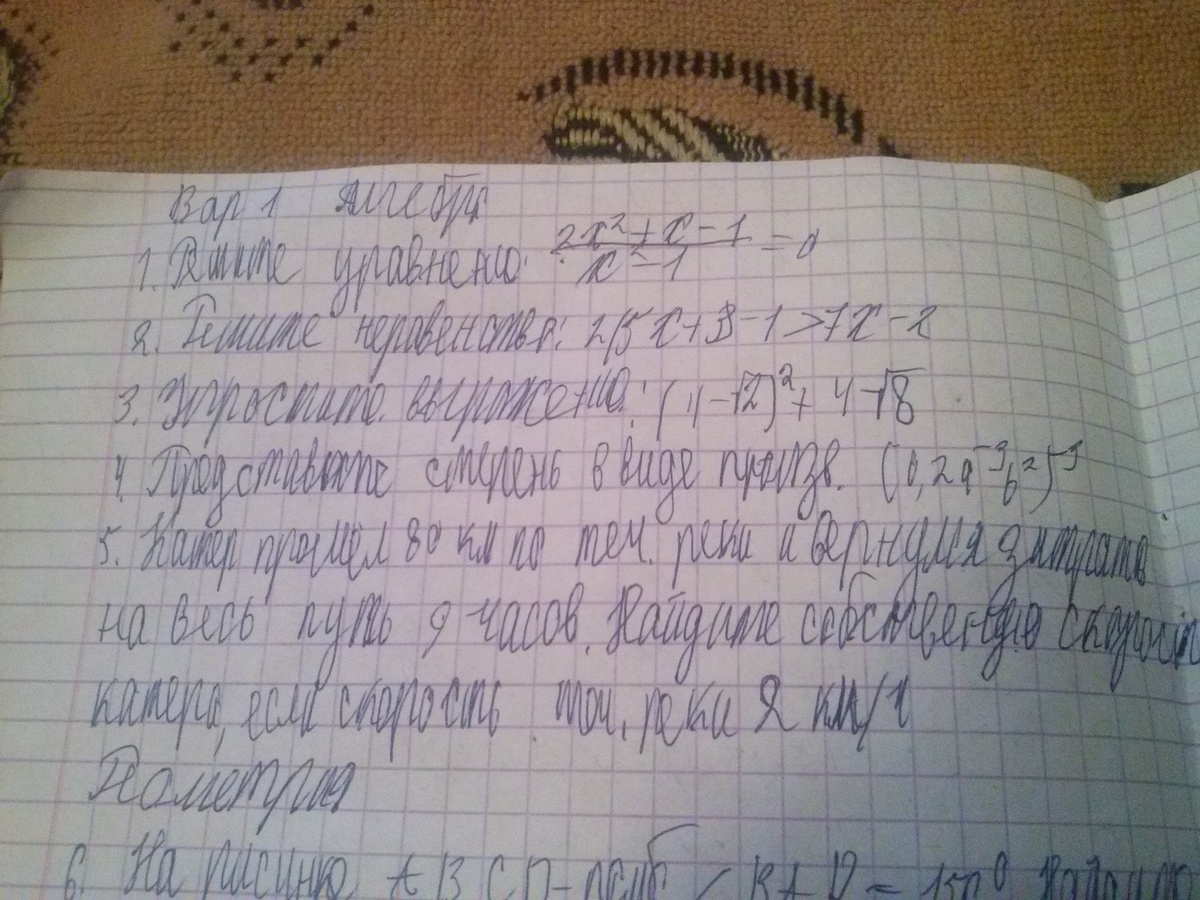 Вар 1 Алгебра
1. Решите уравнение: 2x²+x-1 / x²-1 = 0
2. Решите неравенство: 2(5x+3-1>7x-2
3. Упростите выражение: (4-√2)²+4√8
4. Представьте степень в виде произв. (0,2a⁻³b²)⁻³
5. Катер прошёл 80 км по теч. реки и вернулся затратив
на весь путь 9 часов. Найдите собственную скорость
катера, если скорость теч. реки 2 км/ч
Геометрия
6. На рисунке ABCD-ромб ∠BAD = 150°